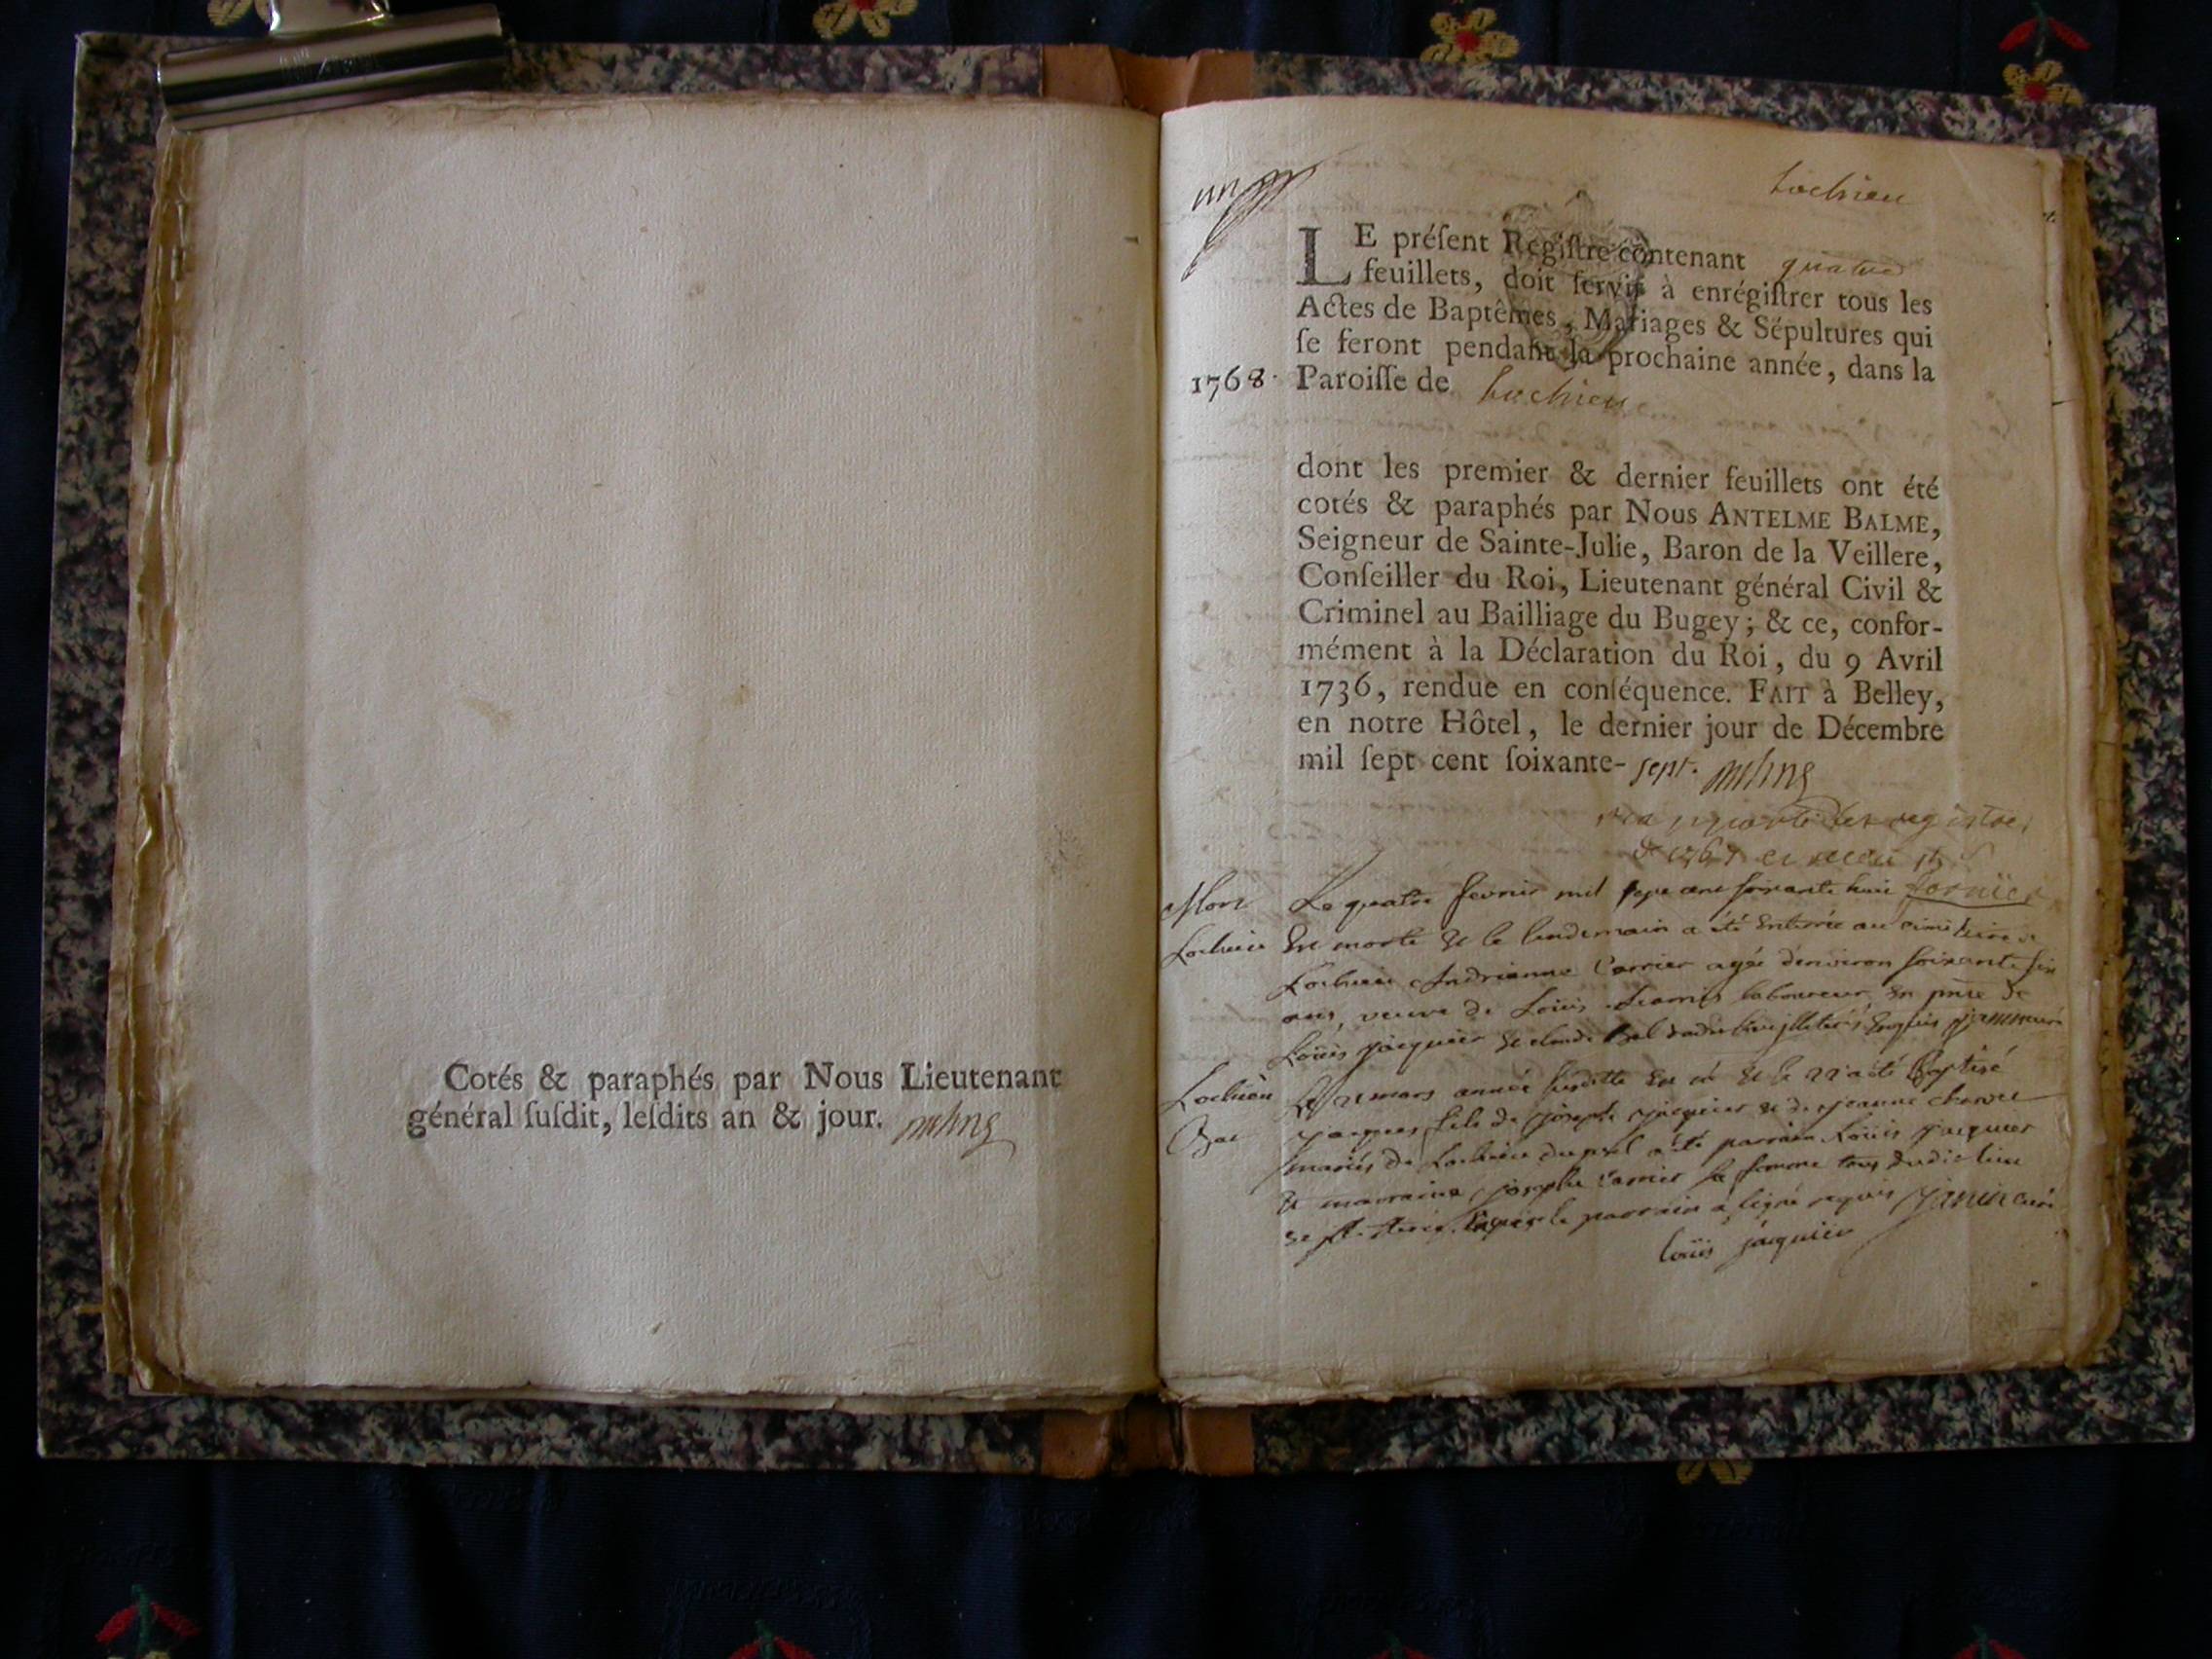 Cotés & paraphés par Nous Lieutenant
général ſuſdit, leſdits an & jour.
un
Lochieu
LE préſent Regiſtre contenant quatre
feuillets, doit ſervir à enrégiſtrer tous les
Actes de Baptêmes, Mariages & Sépultures qui
ſe feront pendant la prochaine année, dans la
1768. Paroiſſe de Lochieu
dont les premier & dernier feuillets ont été
cotés & paraphés par Nous ANTELME BALME,
Seigneur de Sainte-Julie, Baron de la Veillere,
Conſeiller du Roi, Lieutenant général Civil &
Criminel au Bailliage du Bugey; & ce, confor-
mément à la Déclaration du Roi, du 9 Avril
1736, rendue en conſéquence. FAIT à Belley,
en notre Hôtel, le dernier jour de Décembre
mil ſept cent ſoixante-sept.
registres
Mort Le quatre fevrier mil sept cent soixante huit
Lochieu Est morte & le lendemain a été Enterrée au cimetiere de
Lochieu Andrianne Carrier agée d'environ soixante six
ans, veuve de Louis laboureur, En pnce de
Loüis jacquier & claude
Lochieu Le 21 mars année susditte Est né & le 22 a été Baptisé
Bat jacques fils de joseph jacquier & de jeanne
mariés de Lochieu du quel a été parrain Loüis jacquier
& marraine josephe Carrier sa femme tous dudit lieu
le parrain a signé requis janin curé
loüis jàcquier